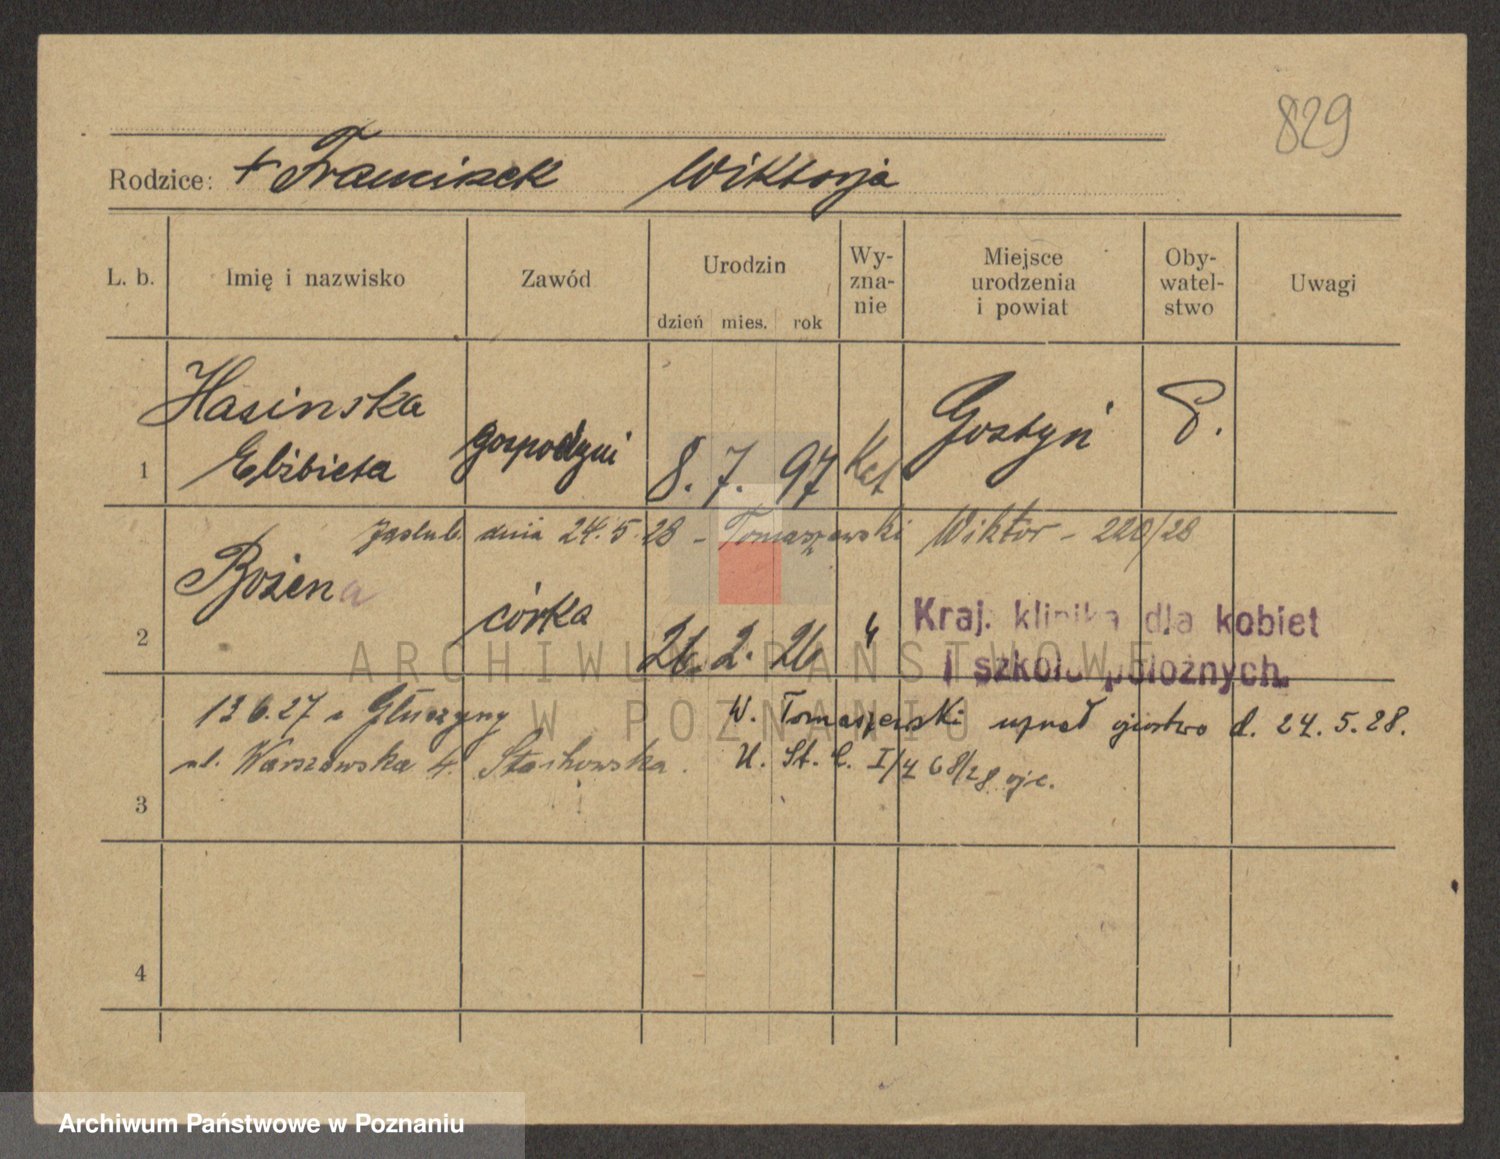 829
Rodzice: + Franciszek Wiktorja
L. b. Imię i nazwisko Zawód Urodzin dzień mies. rok Wy-zna-nie Miejsce urodzenia i powiat Oby-watel-stwo Uwagi
1 Hasinska Elżbieta gospodyni 8. 7. 97 Kat Gostyń P.
zaślub. dnia 24. 5. 28 - Tomaszewski Wiktor - 220/28
2 Bożena córka 26. 2. 26 Kraj. klinika dla kobiet
i szkoła położnych.
13 6.27 z Głuszyny W. Tomaszewski uznał ojcostwo d. 24. 5. 28.
ul. Warszawska 4. Stachowska. U. St. C. I/4 68/28 ojc.
3
4
ARCHIWUM PAŃSTWOWE
W POZNANIU
Archiwum Państwowe w Poznaniu